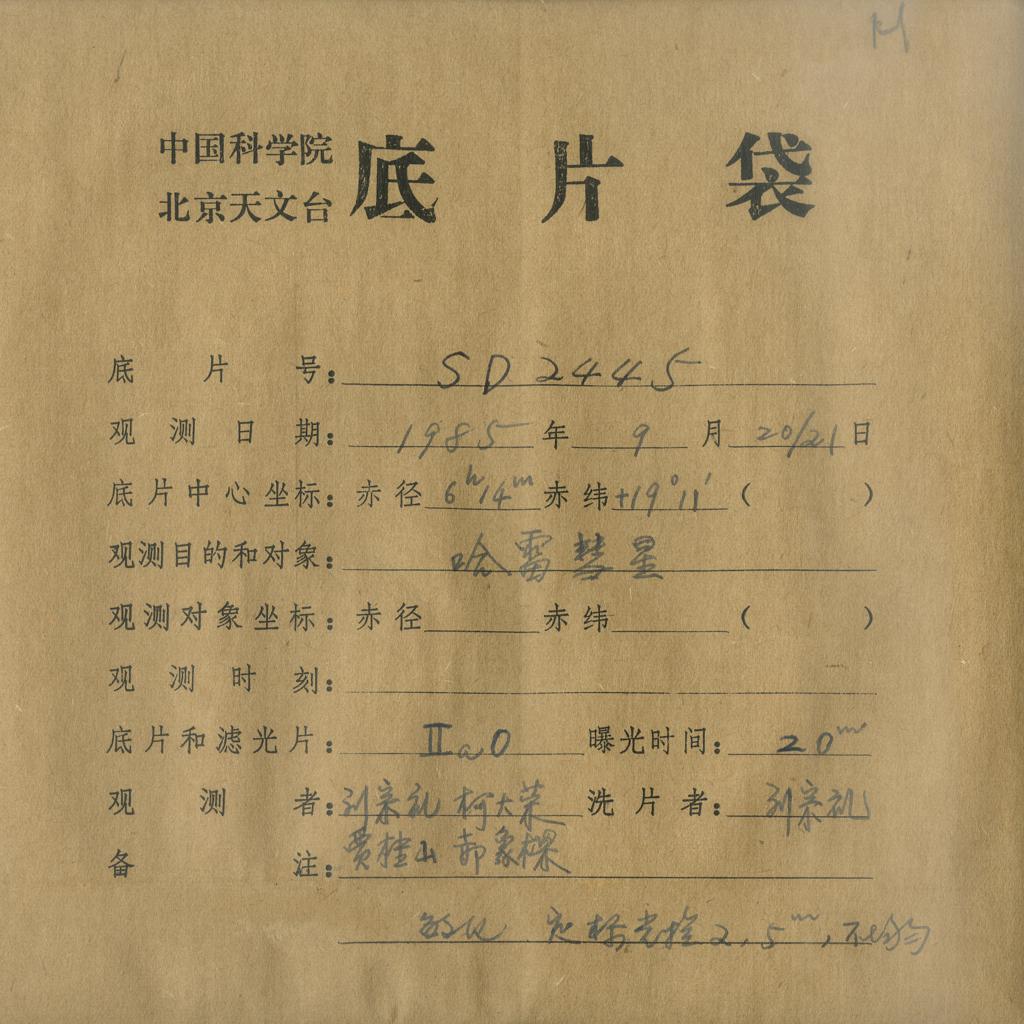 中国科学院
北京天文台
底片袋
底片号: SD 2445
观测日期: 1985年 9月 20/21日
底片中心坐标: 赤径 6h14m 赤纬 +19°11′ ( )
观测目的和对象: 哈雷彗星
观测对象坐标: 赤径 赤纬 ( )
观测时刻:
底片和滤光片: IIaO 曝光时间: 20m
观测者: 刘宗礼 柯大荣 洗片者: 刘宗礼
贾桂山 郝象樑
备注:
敏化 定标光控 2.5m, 不均匀